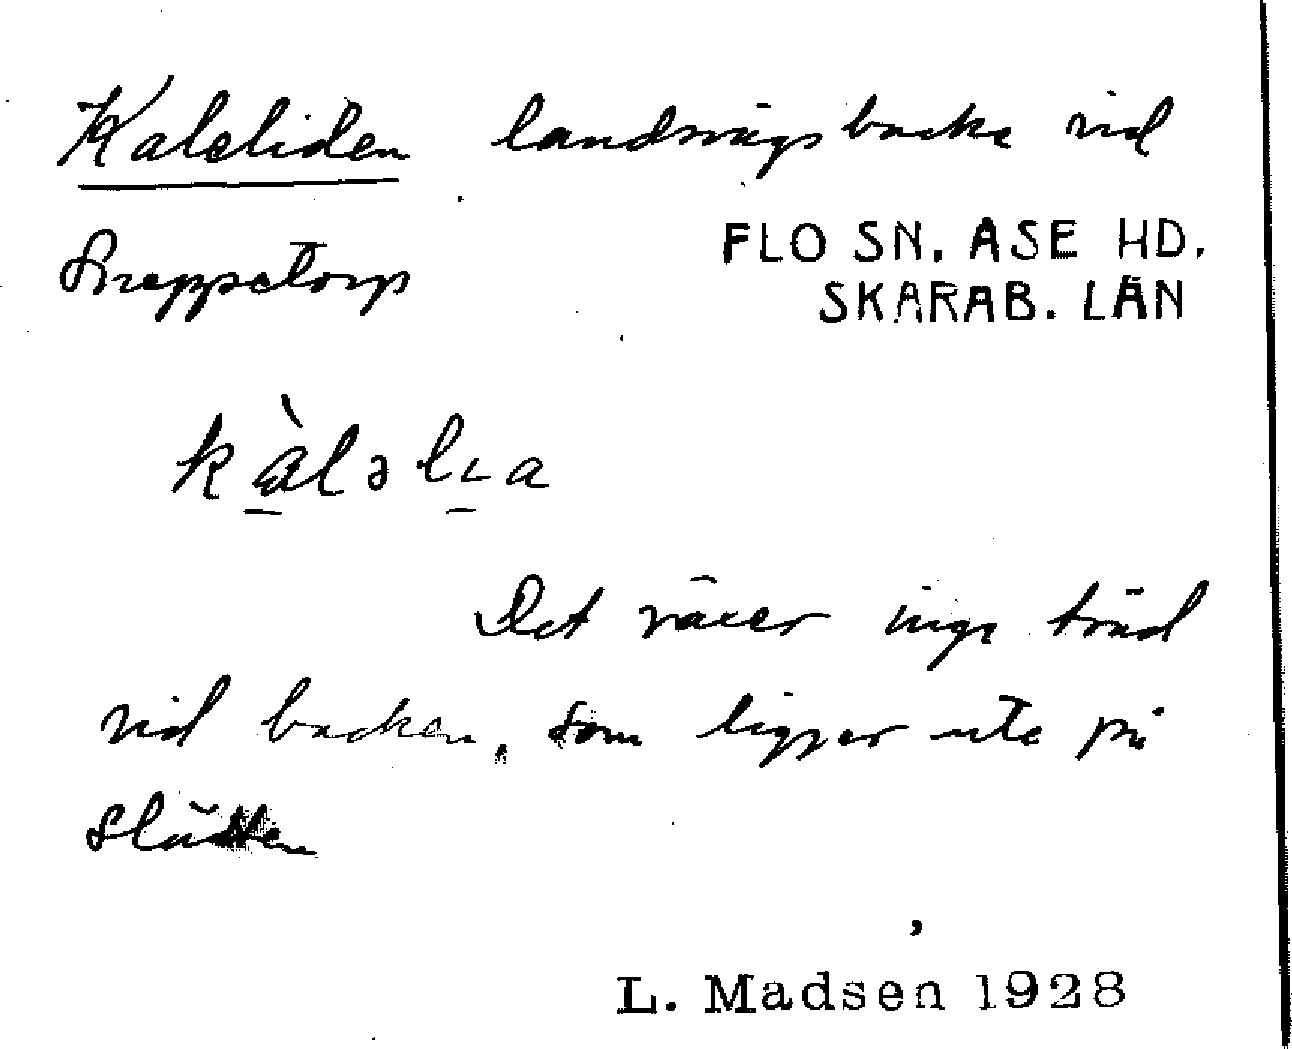 Kaleliden landsvägsbacke vid
Sreppetorp
FLO SN. ÅSE HD.
SKARAB. LÄN
kàləlıa
Det växer inga träd
vid backen, som ligger ute på
slätten
L. Madsen 1928